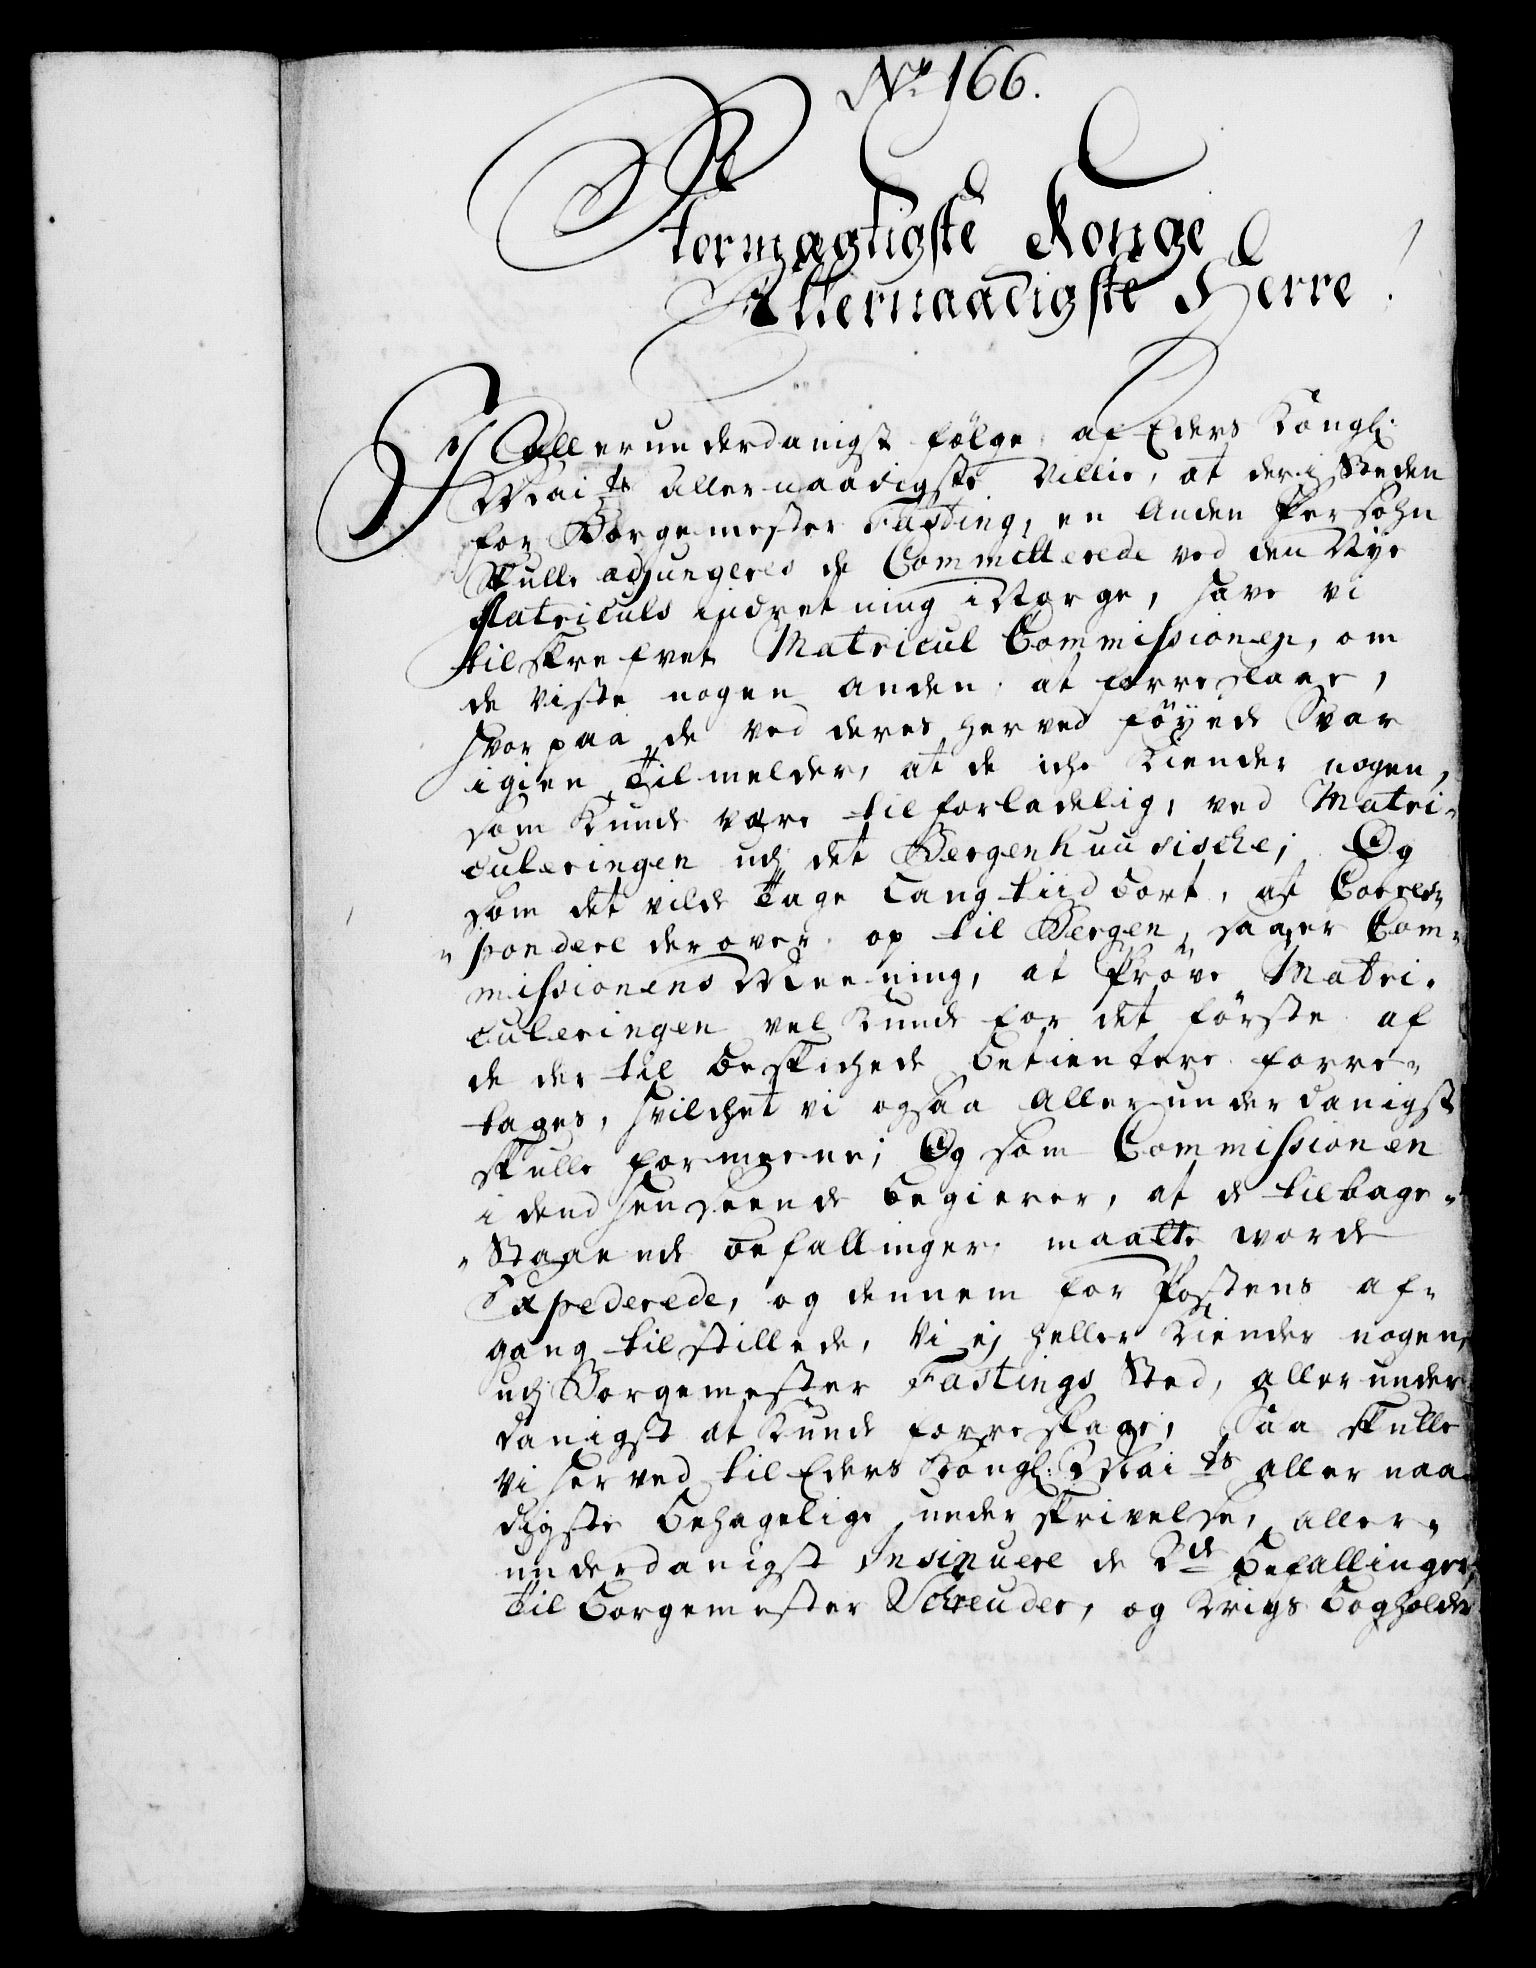 No 166.
Stormægtigste Konge
Allernaadigste Herre!
I Allerunderdanigst følge af Eders Kongl:
Maits allernaadigste Villie, at der i Steden
for Borgemester Fasting, en Anden Persohn
Skulle adjungeres de Committerede ved den Nye
Matriculs indretning i Norge, have vi
tilskrefvet Matricul Commissionen, om
de viste nogen anden at forreslaae,
hvorpaa de ved deres herved föyede Svar
igien Tilmelder, at de iche Kiender nogen,
som Kunde være tilforladelig, ved Matri-
culeringen udj det Bergenhuusische; Og
som det vilde Tage Lang tiid bort, at Corres-
pondere derover op til Bergen, saa er Com-
missionens Meening, at Pröve Matri-
culeringen vel Kunde for det förste af
de der til beskichede betientere forre-
tages, hvilchet vi ogsaa Allerunderdanigst
skulle formeene; Og som Commissionen
i dend henseende begierer, at de tilbage-
Staaende befallinger maatte worde
Expederede, og dennem for Postens af-
gang tilstillede, Vi ej heller Kiender nogen,
udj Borgemester Fastings Sted, allerunder
danigst at Kunde forreslage, Saa skulle
Vi herved til Eders Kongl: Maits allernaa-
digste behagelige underskrivelse, aller-
underdanigst Insinuere de 2de befallinger,
Til Borgemester Schreuder, og Krigs bogholder